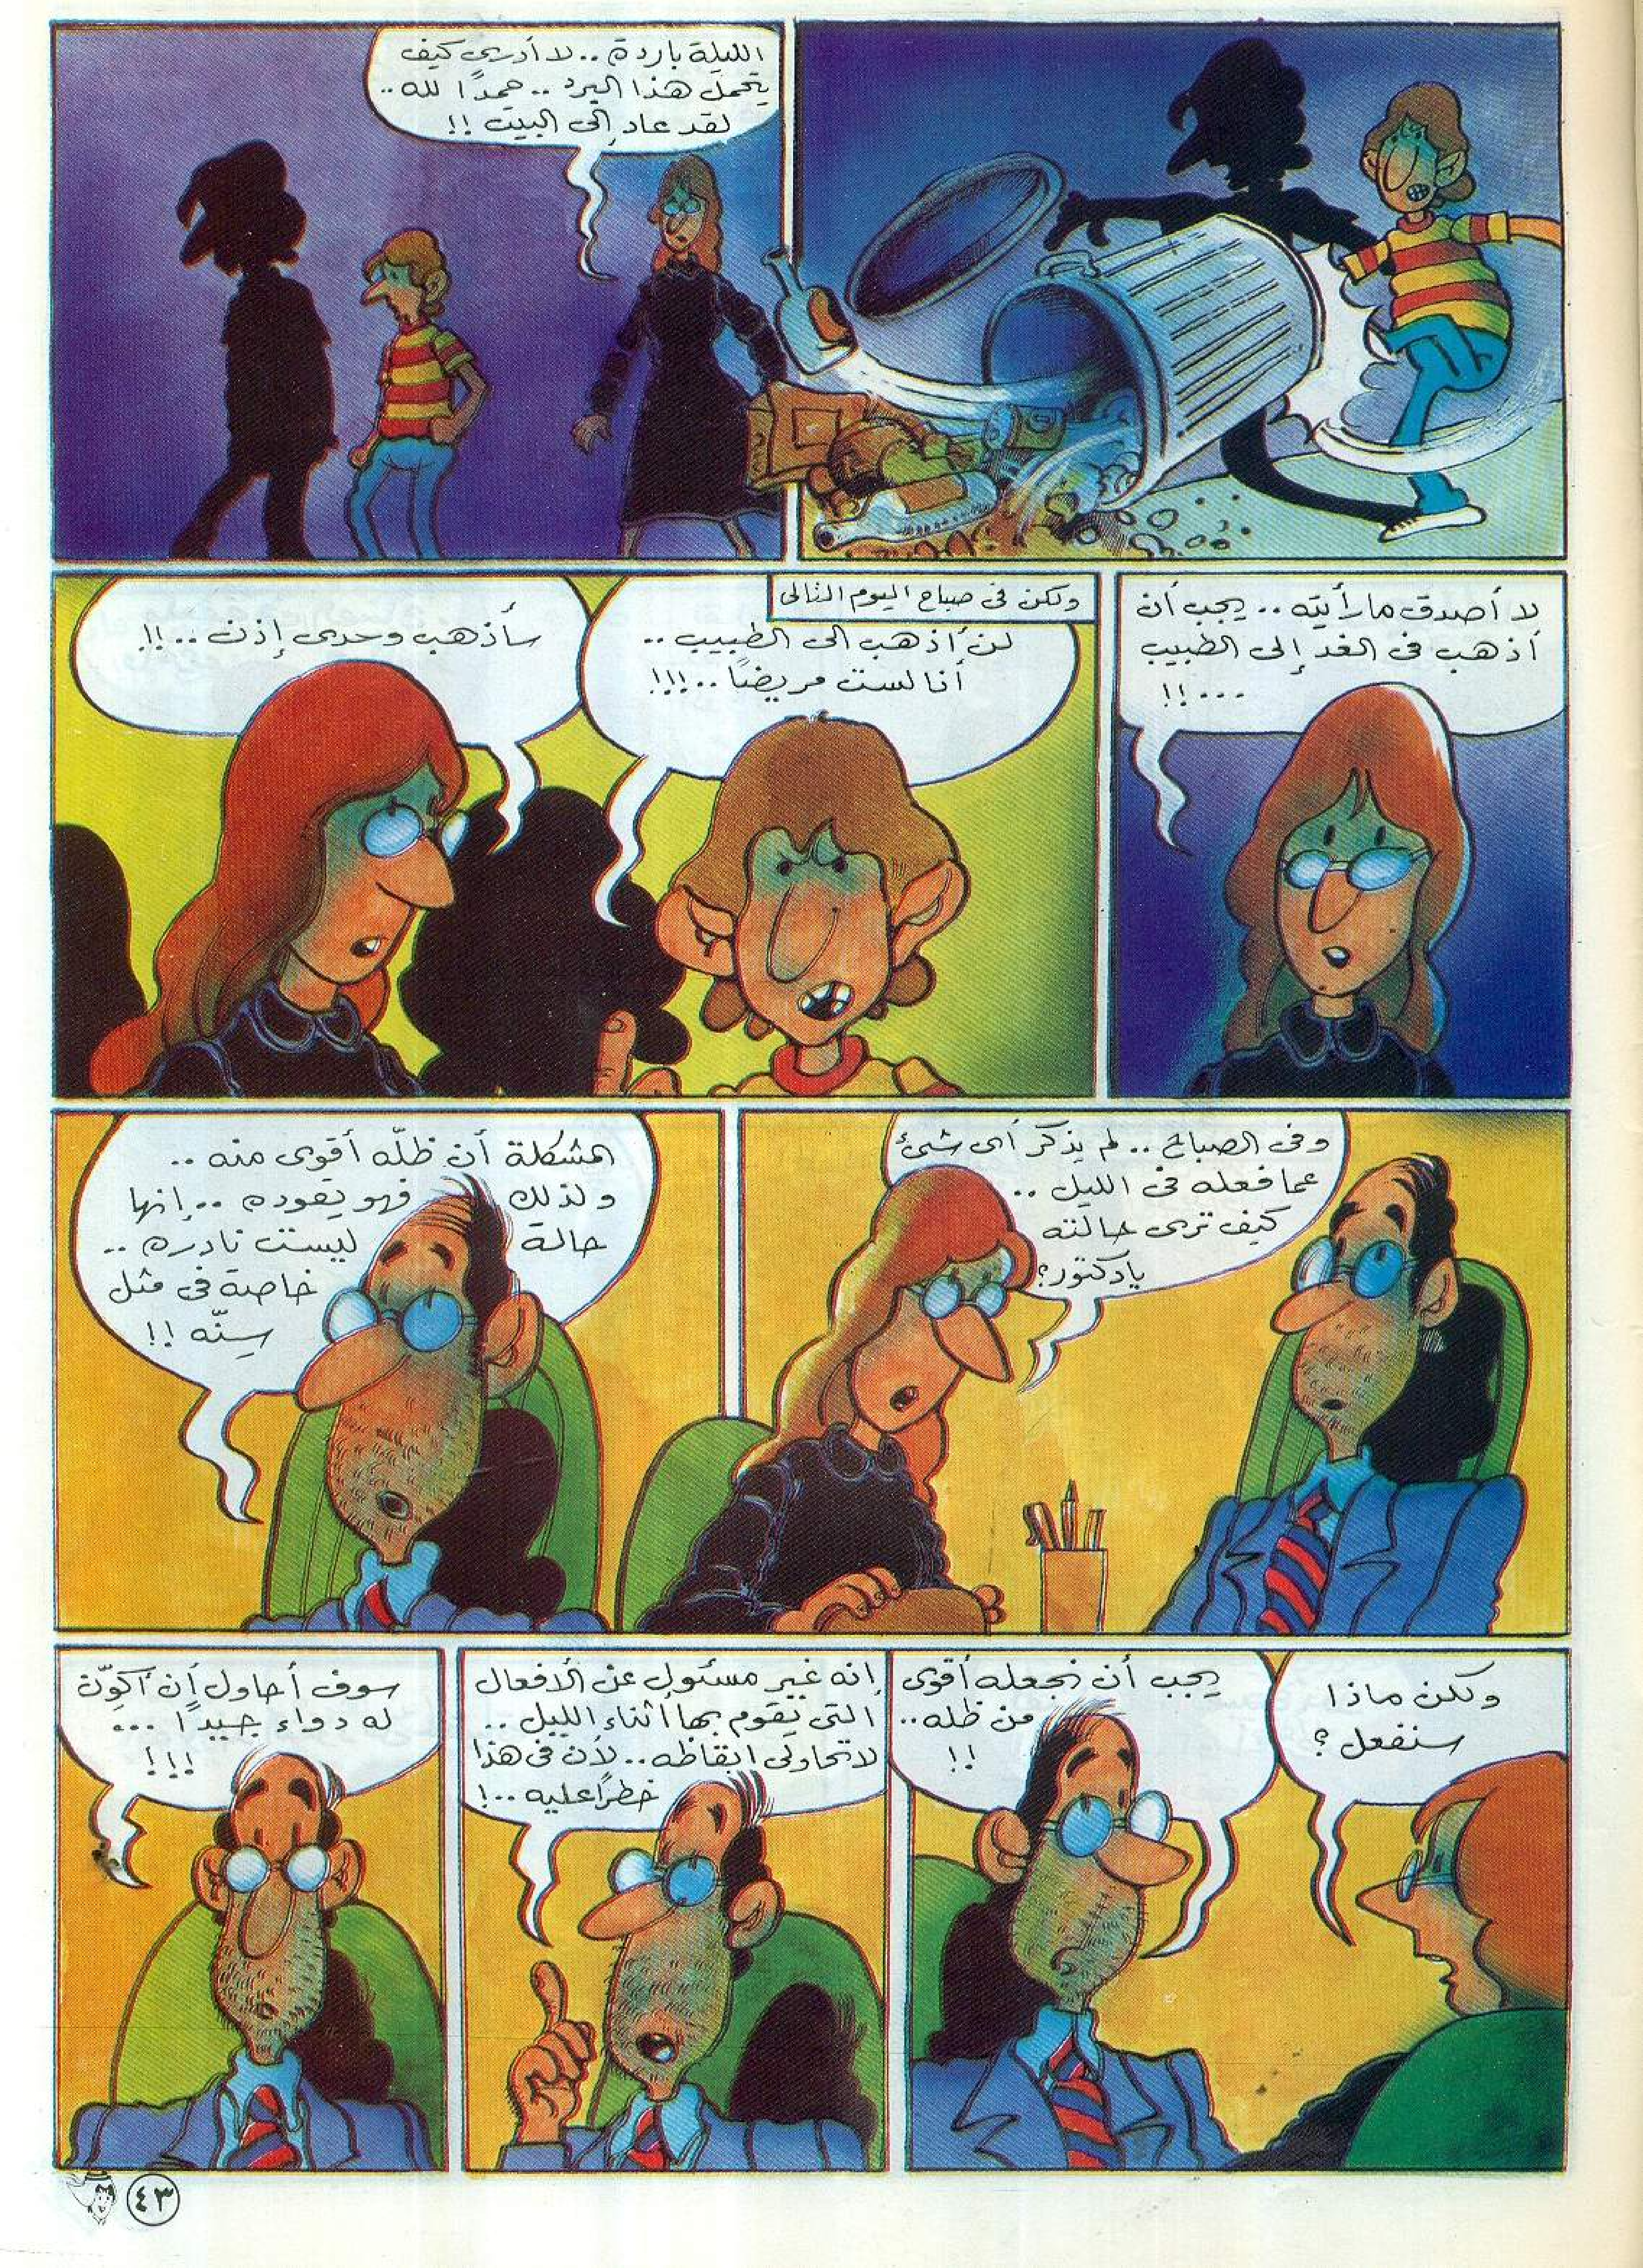 الليلة باردة .. لا أدرى كيف
يتحمل هذا البرد .. حمدًا لله ..
لقد عاد إلى البيت !!
لا أصدق ما رأيته .. يجب أن
أذهب فى الغد إلى الطبيب
... !!
ولكن فى صباح اليوم التالى
لن أذهب الى الطبيب ..
أنا لست مريضًا .. !!!
سأذهب وحدى إذن .. !!
وفى الصباح .. لم يذكر أى شئ
عما فعله فى الليل ..
كيف ترى حالته
يا دكتور؟
المشكلة أن ظلّه أقوى منه ..
ولذلك فهو يقوده .. إنها
حالة ليست نادره ..
خاصة فى مثل
سنّه !!
ولكن ماذا
سنفعل ؟
يجب أن نجعله أقوى
من ظله ..
!!
إنه غير مسئول عن الأفعال
التى يقوم بها أثناء الليل ..
لا تحاولى ايقاظه .. لأن فى هذا
خطرًا عليه .. !
سوف أحاول أن أكوّن
له دواء جيدًا ...
!!!
٤٣